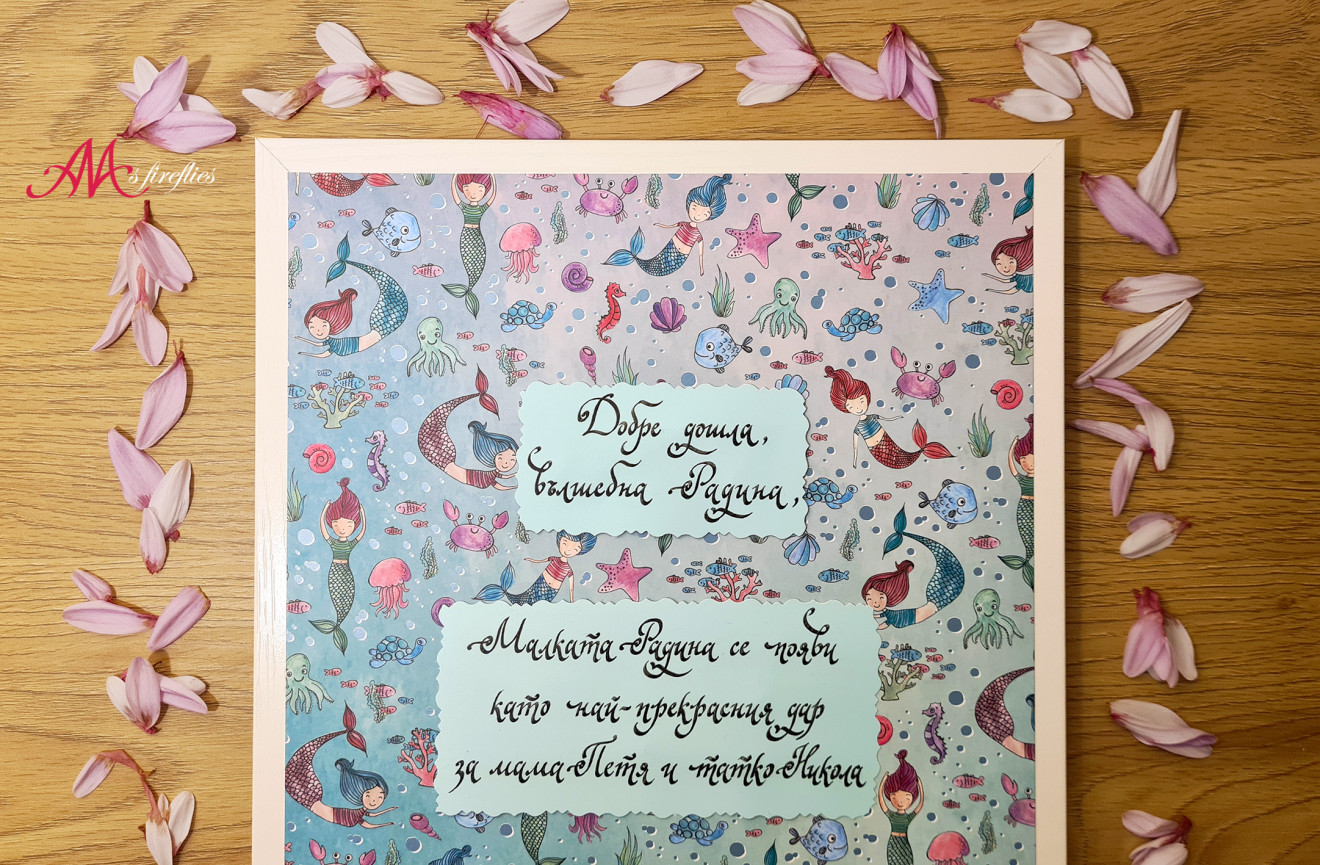 AAA's fireflies
Добре дошла,
вълшебна Радина,
Малката Радина се появи
като най-прекрасния дар
за мама Петя и татко Никола